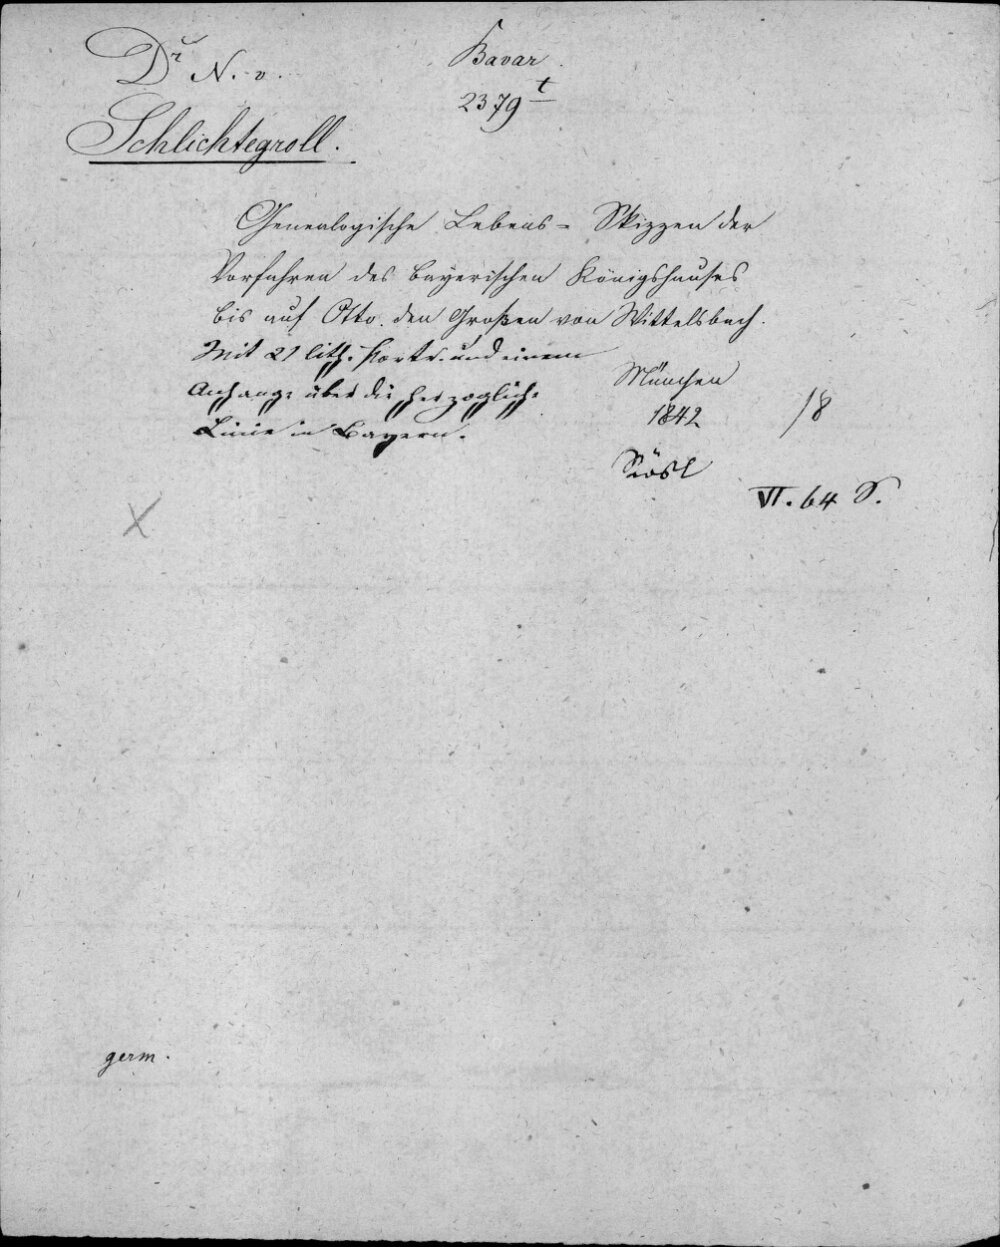 Dr N. v.
Schlichtegroll.
Bavar.
2379 t
Genealogische Lebens-Skizzen der
Vorfahren des bayerischen Königshauses
bis auf Otto den Großen von Wittelsbach.
Mit 21 lith. Portr. und einem
Anhang über die herzogliche
Linie in Bayern.
München
1842
/8
Rösl
VI. 64 S.
germ.